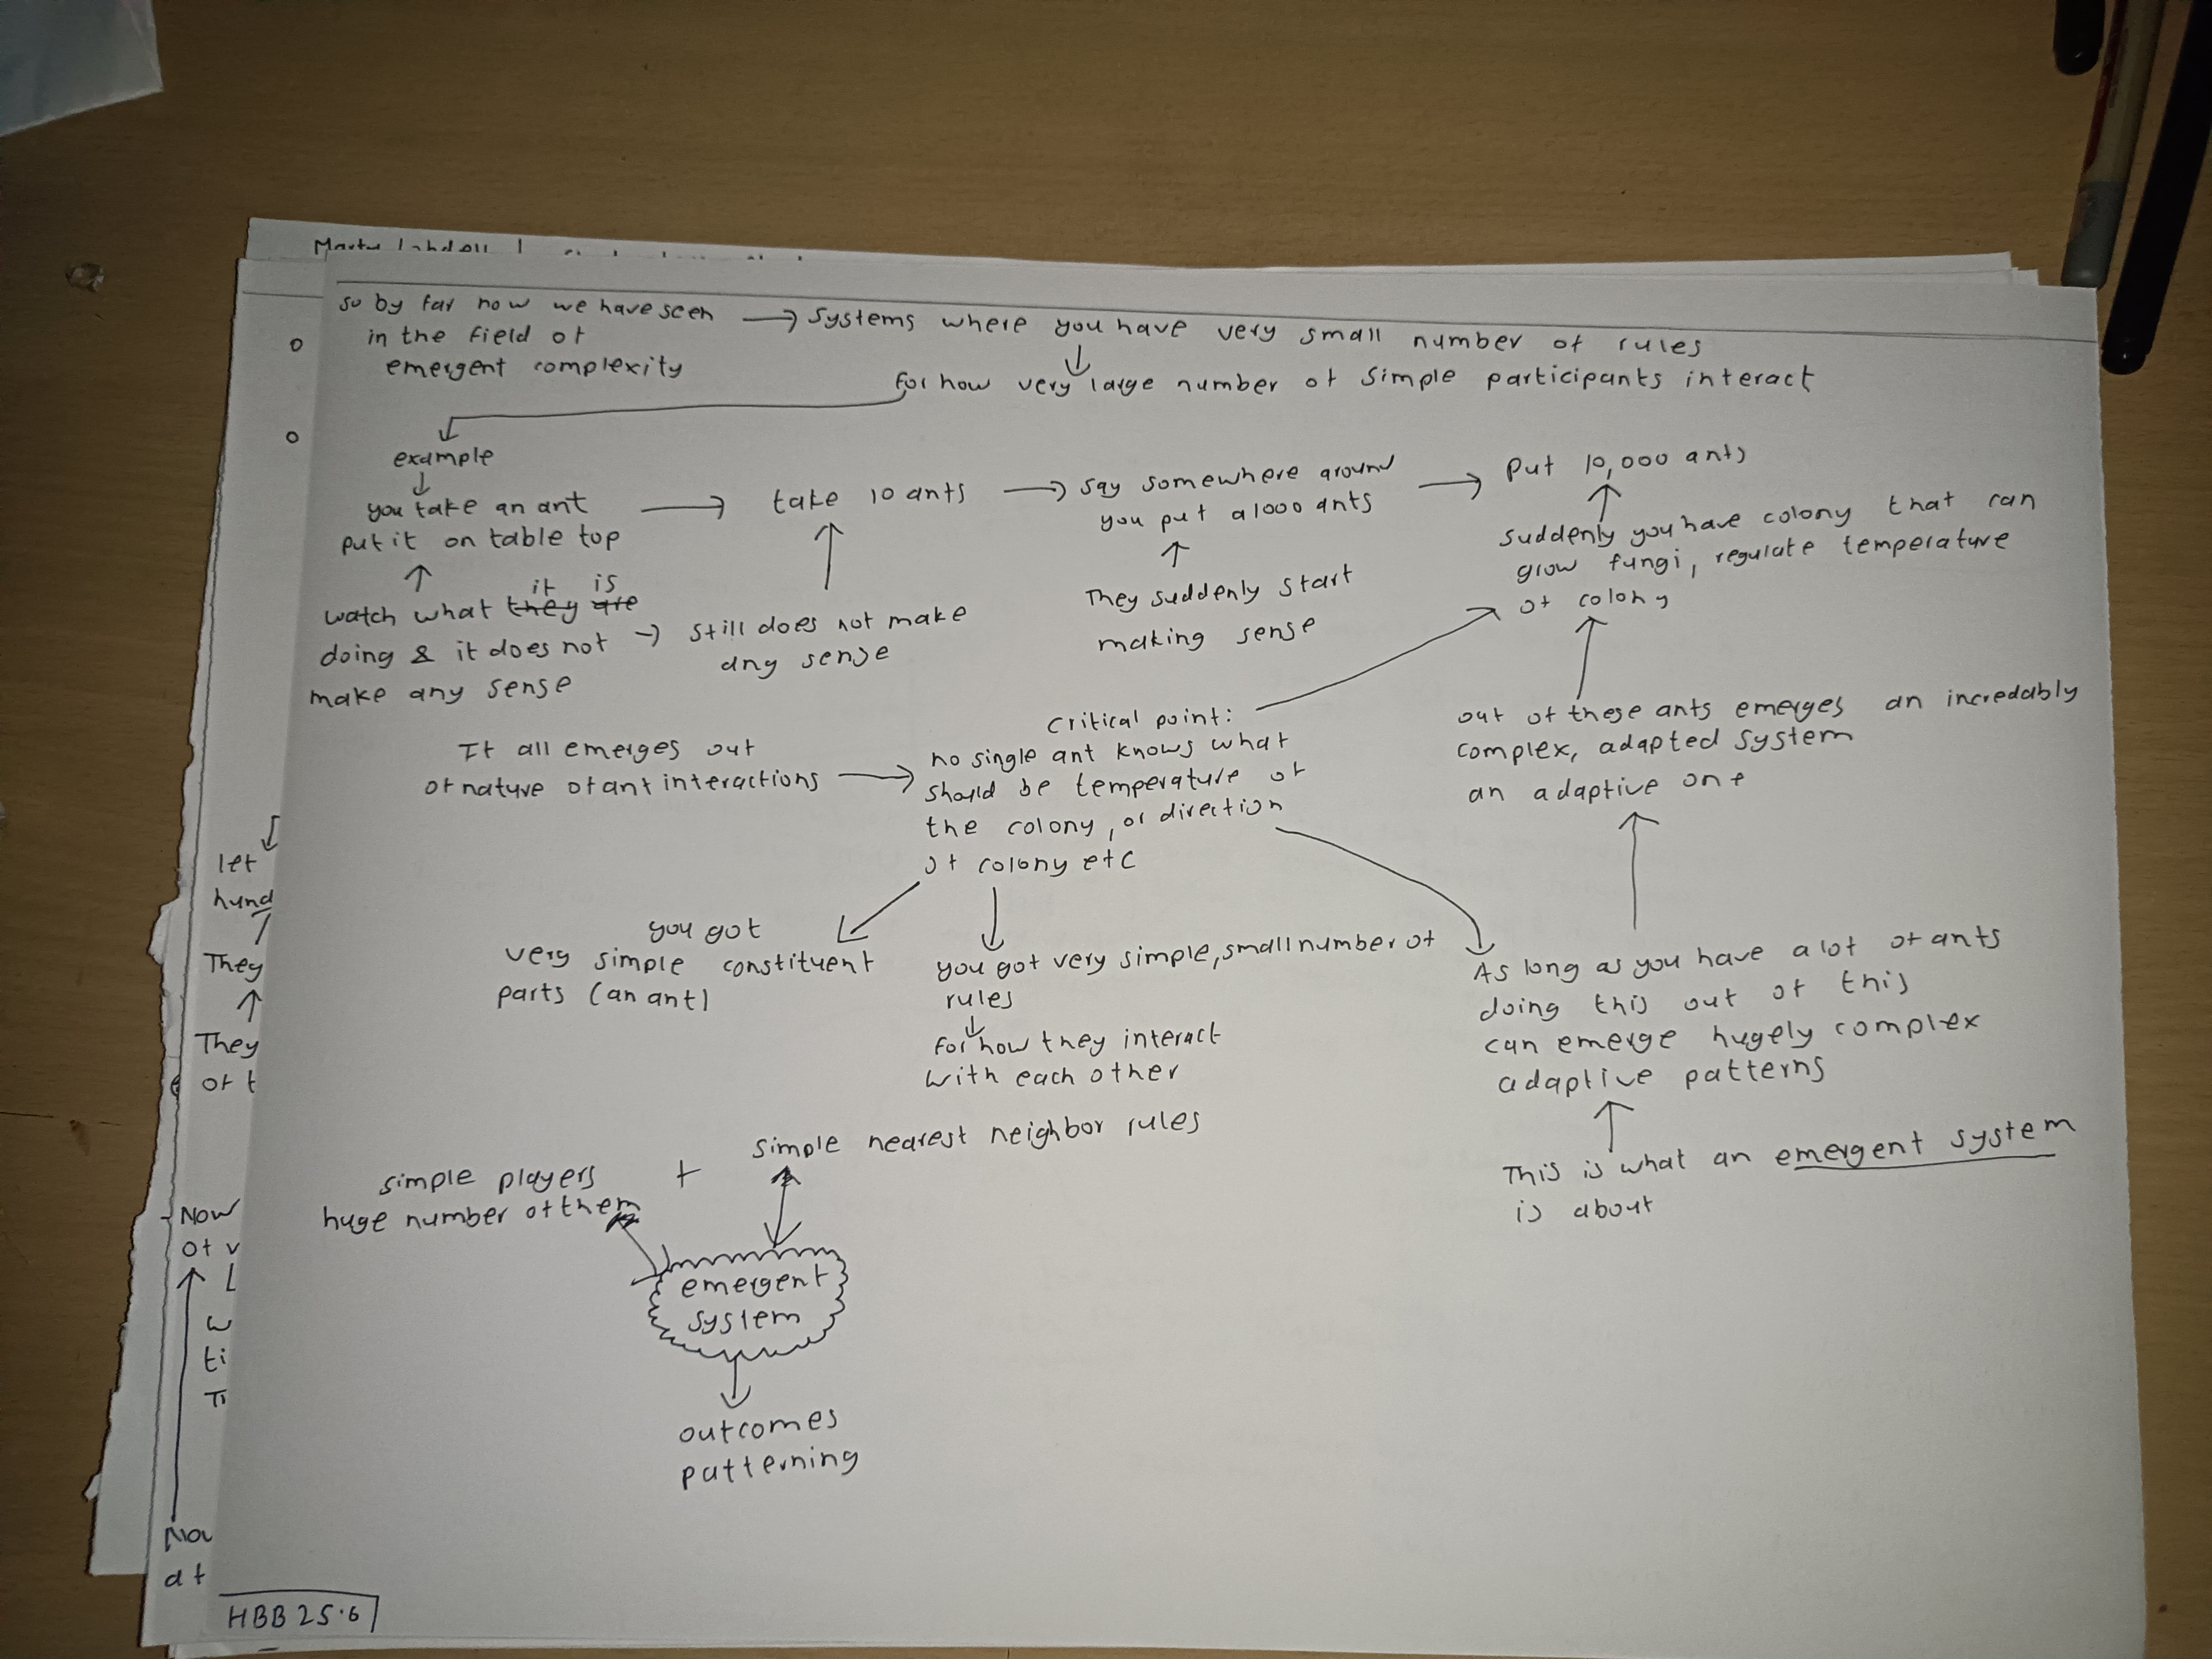 so by far now we have seen
in the field of
emergent complexity
systems where you have very small number of rules
for how very large number of simple participants interact
example
you take an ant
put it on table top
watch what they are it is
doing & it does not
make any sense
take 10 ants
still does not make
any sense
say somewhere around
you put a 1000 ants
They suddenly start
making sense
Put 10,000 ants
suddenly you have colony that can
grow fungi, regulate temperature
of colony
out of these ants emerges an incredably
complex, adapted system
an adaptive one
It all emerges out
of nature of ant interactions
critical point:
no single ant knows what
should be temperature of
the colony, or direction
of colony etc
you got
very simple constituent
parts (an ant)
you got very simple, small number of
rules
for how they interact
with each other
As long as you have a lot of ants
doing this out of this
can emerge hugely complex
adaptive patterns
This is what an emergent system
is about
simple players
huge number of them
+
simple nearest neighbor rules
emergent
system
outcomes
patterning
HBB 25.6
let
hund
They
They
of t
Now
of v
L
w
ti